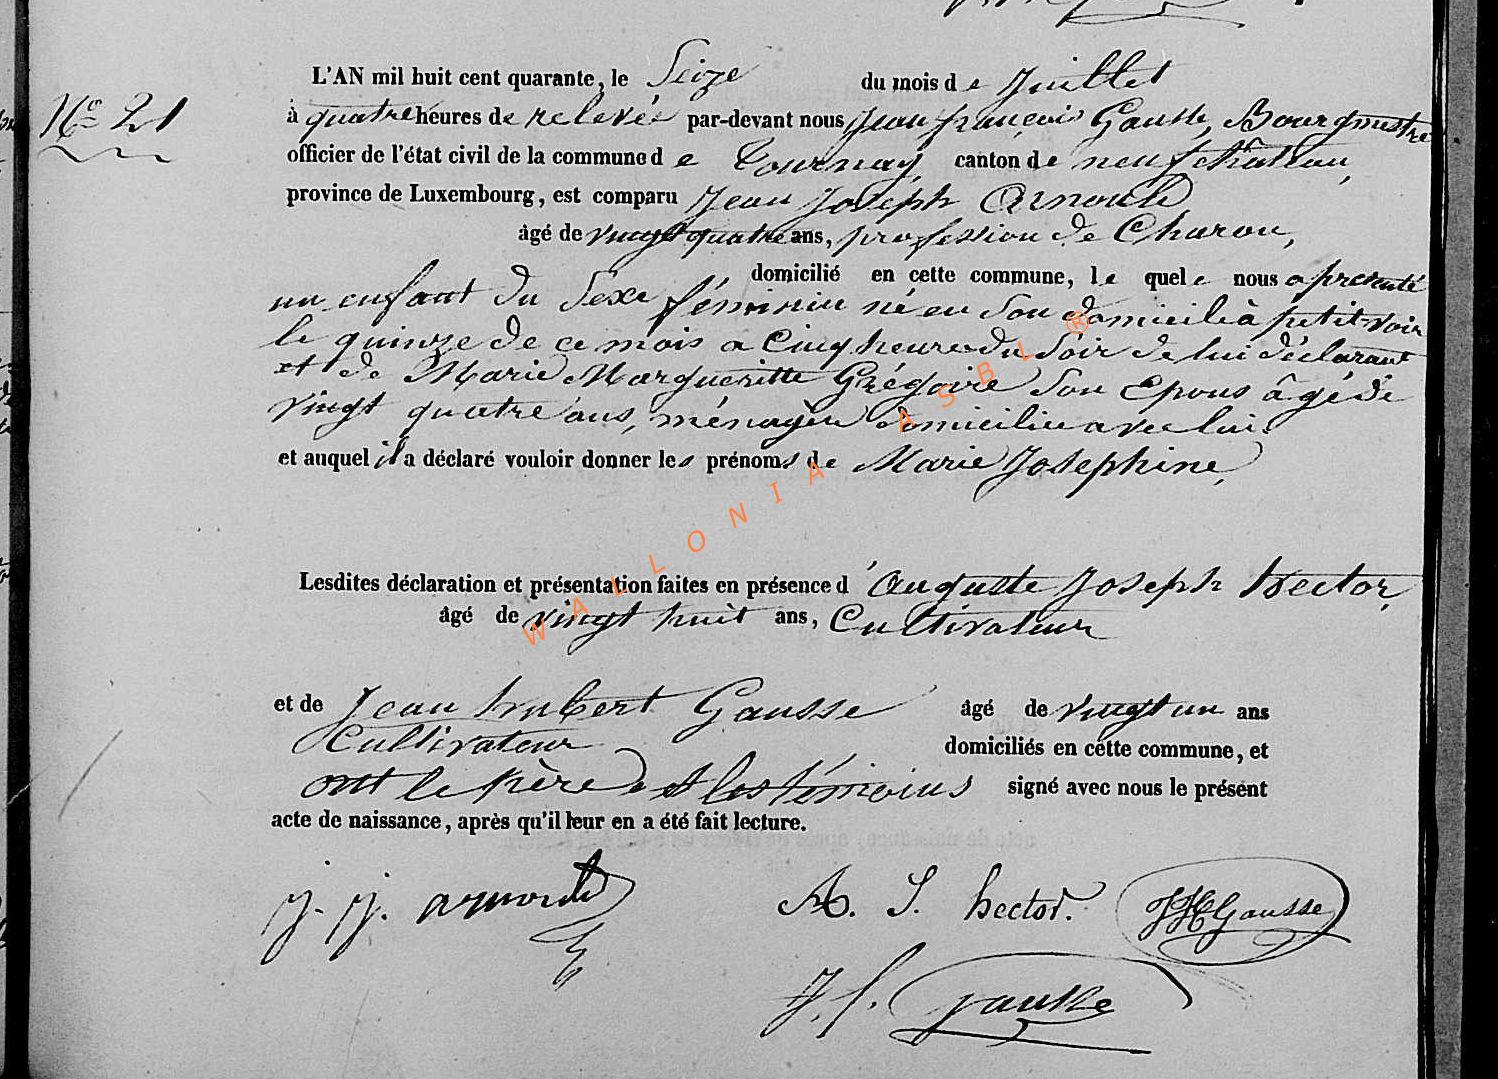 L'AN mil huit cent quarante, le Seize du mois de Juillet
N° 21
à quatre heures de relevée par-devant nous Jean françois Gausse, Bourgmestre
officier de l'état civil de la commune de Tournay, canton de neufchâteau,
province de Luxembourg, est comparu Jean Joseph Arnould
âgé de vingt quatre ans, profession de Charon,
domicilié en cette commune, le quel nous a presenté
un enfant du Sexe féminin né en Son domicile à petit-voir
le quinze de ce mois a Cinq heures du Soir de lui déclarant
et de Marie Margueritte Grégoire Son Epous âgé de
vingt quatre ans, ménagère domicilie avec lui.
et auquel il a déclaré vouloir donner les prénoms de Marie Josephine,
Lesdites déclaration et présentation faites en présence d'Auguste Joseph Hector,
âgé de vingt huit ans, Cultivateur
et de Jean hubert Gausse âgé de vingt un ans
Cultivateur
domiciliés en cette commune, et
ont le père et les témoins signé avec nous le présent
acte de naissance, après qu'il leur en a été fait lecture.
j. j. arnould
A. J. hector.
JH Gausse
J. f. Gausse
WALLONIA ASBL ®